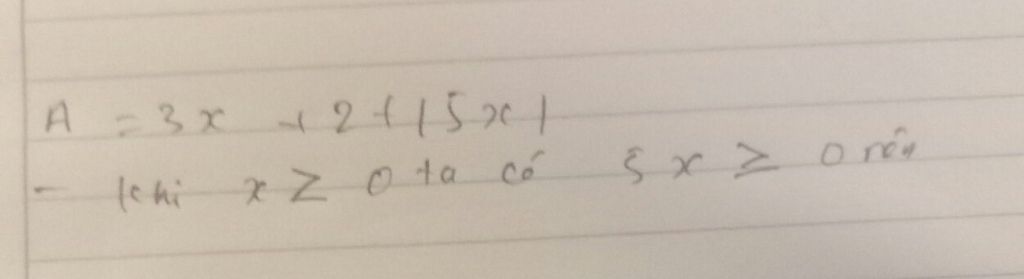 A = 3x + 2 + |5x|
- khi x ≥ 0 ta có 5x ≥ 0 nên